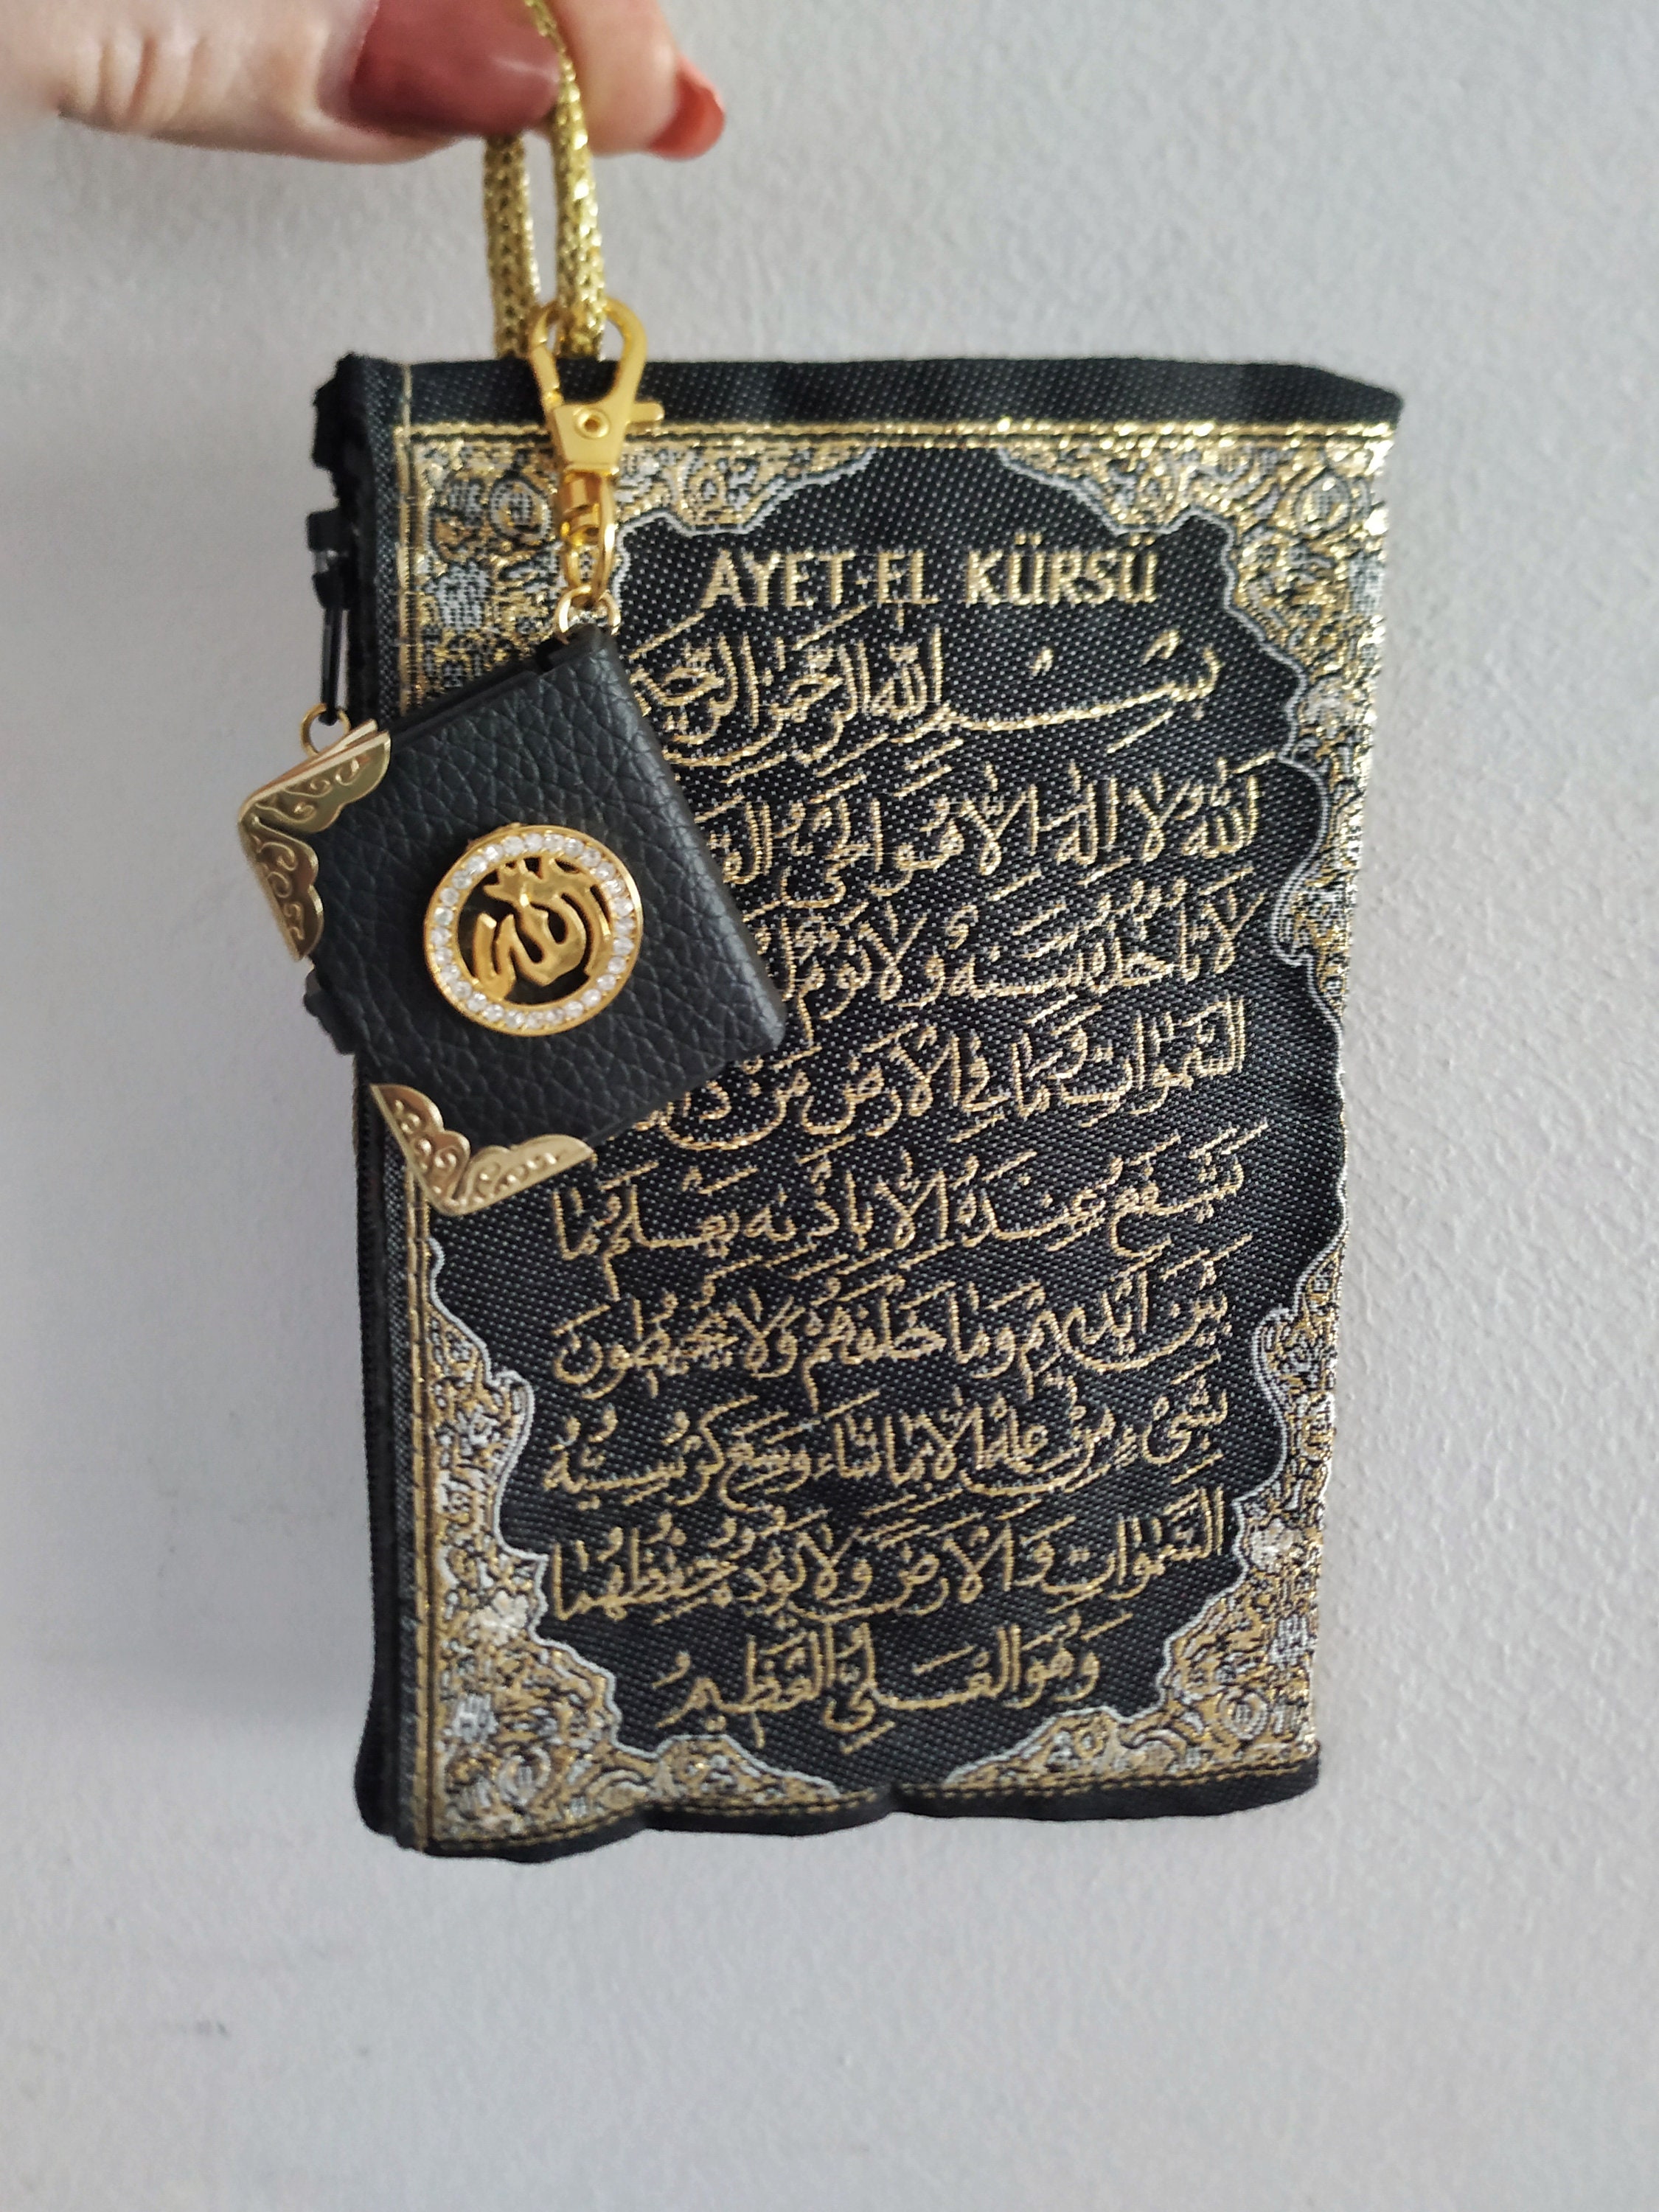 AYET-EL KÜRSÜ
بِسْمِ اللّٰهِ الرَّحْمٰنِ الرَّحِي
اَللّٰهُ لَا اِلٰهَ اِلَّا هُوَ الْحَىُّ الْقَ
لَا تَأْخُذُهُ سِنَةٌ وَلَا نَوْمٌ
السَّمٰوَاتِ وَمَا فِى الْاَرْضِ مَنْ ذَا
يَشْفَعُ عِنْدَهُ اِلَّا بِاِذْنِهِ يَعْلَمُ مَا
بَيْنَ اَيْدِيهِمْ وَمَا خَلْفَهُمْ وَلَا يُحِيطُونَ
بِشَىْءٍ مِنْ عِلْمِهِ اِلَّا بِمَا شَاءَ وَسِعَ كُرْسِيُّهُ
السَّمٰوَاتِ وَالْاَرْضَ وَلَا يَؤُدُهُ حِفْظُهُمَا
وَهُوَ الْعَلِىُّ الْعَظِيمُ
الله